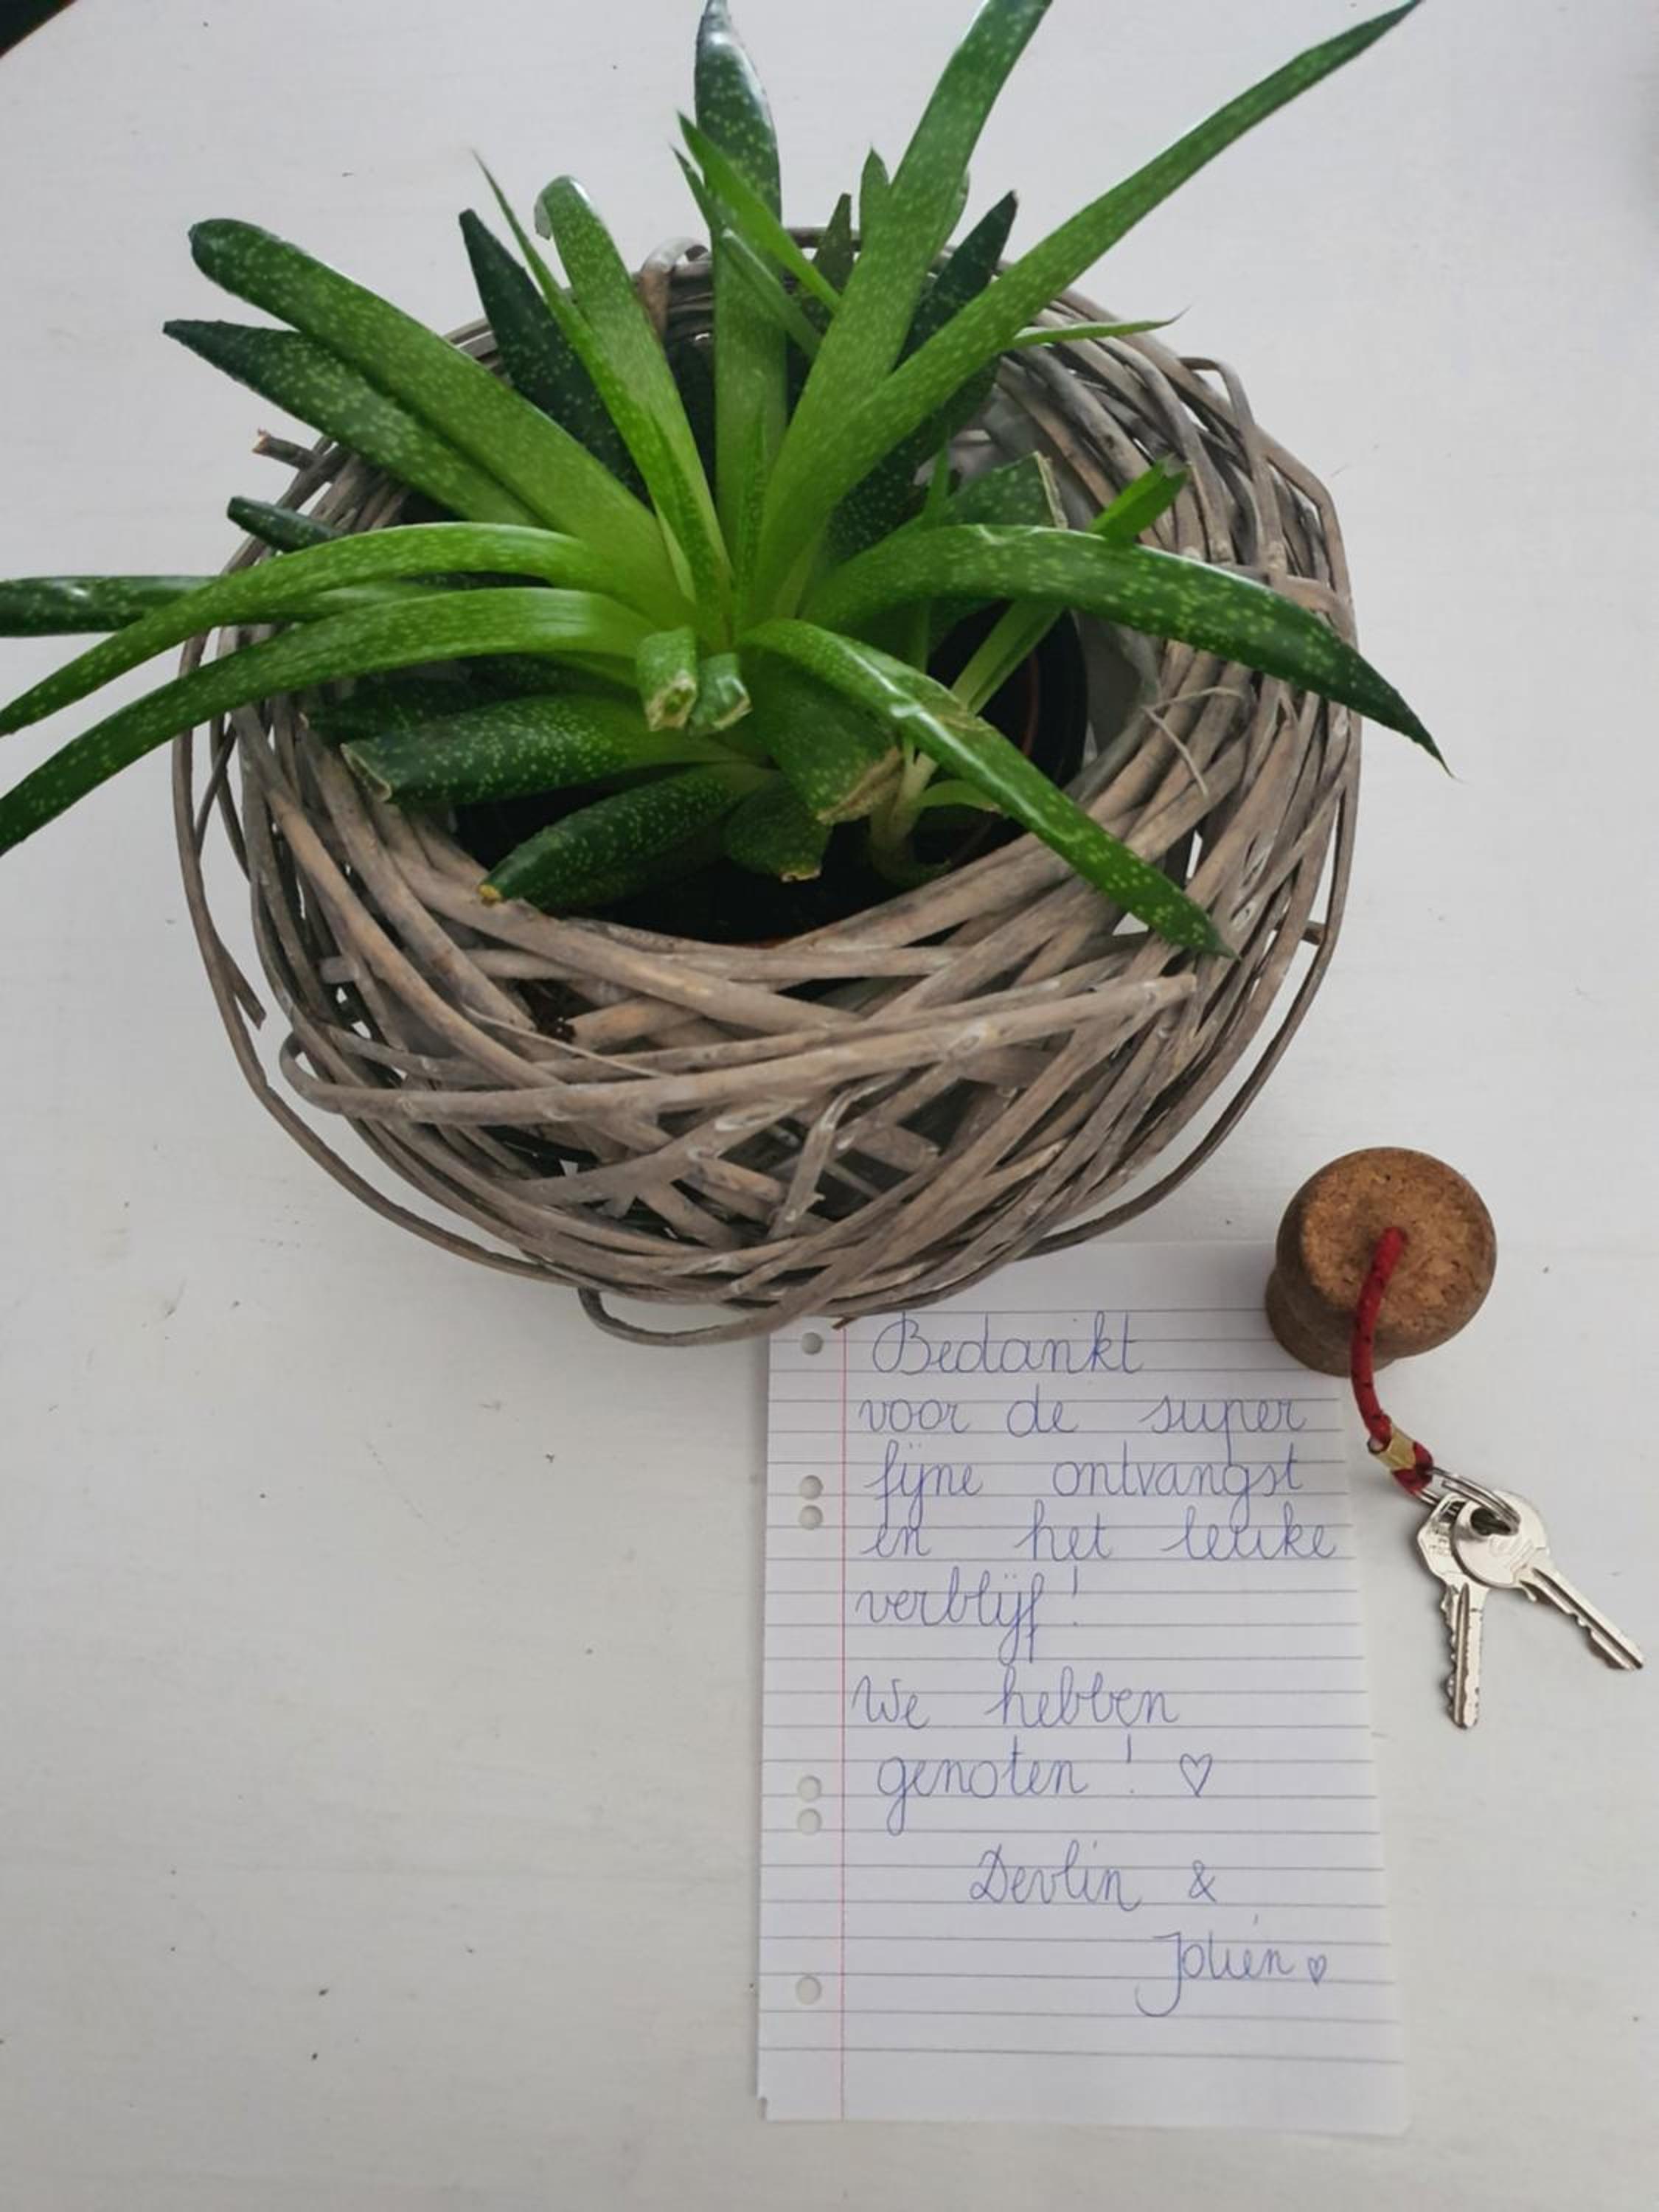 Bedankt
voor de super
fijne ontvangst
en het leuke
verblijf!
We hebben
genoten! ♡
Devlin &
Jolien ♡